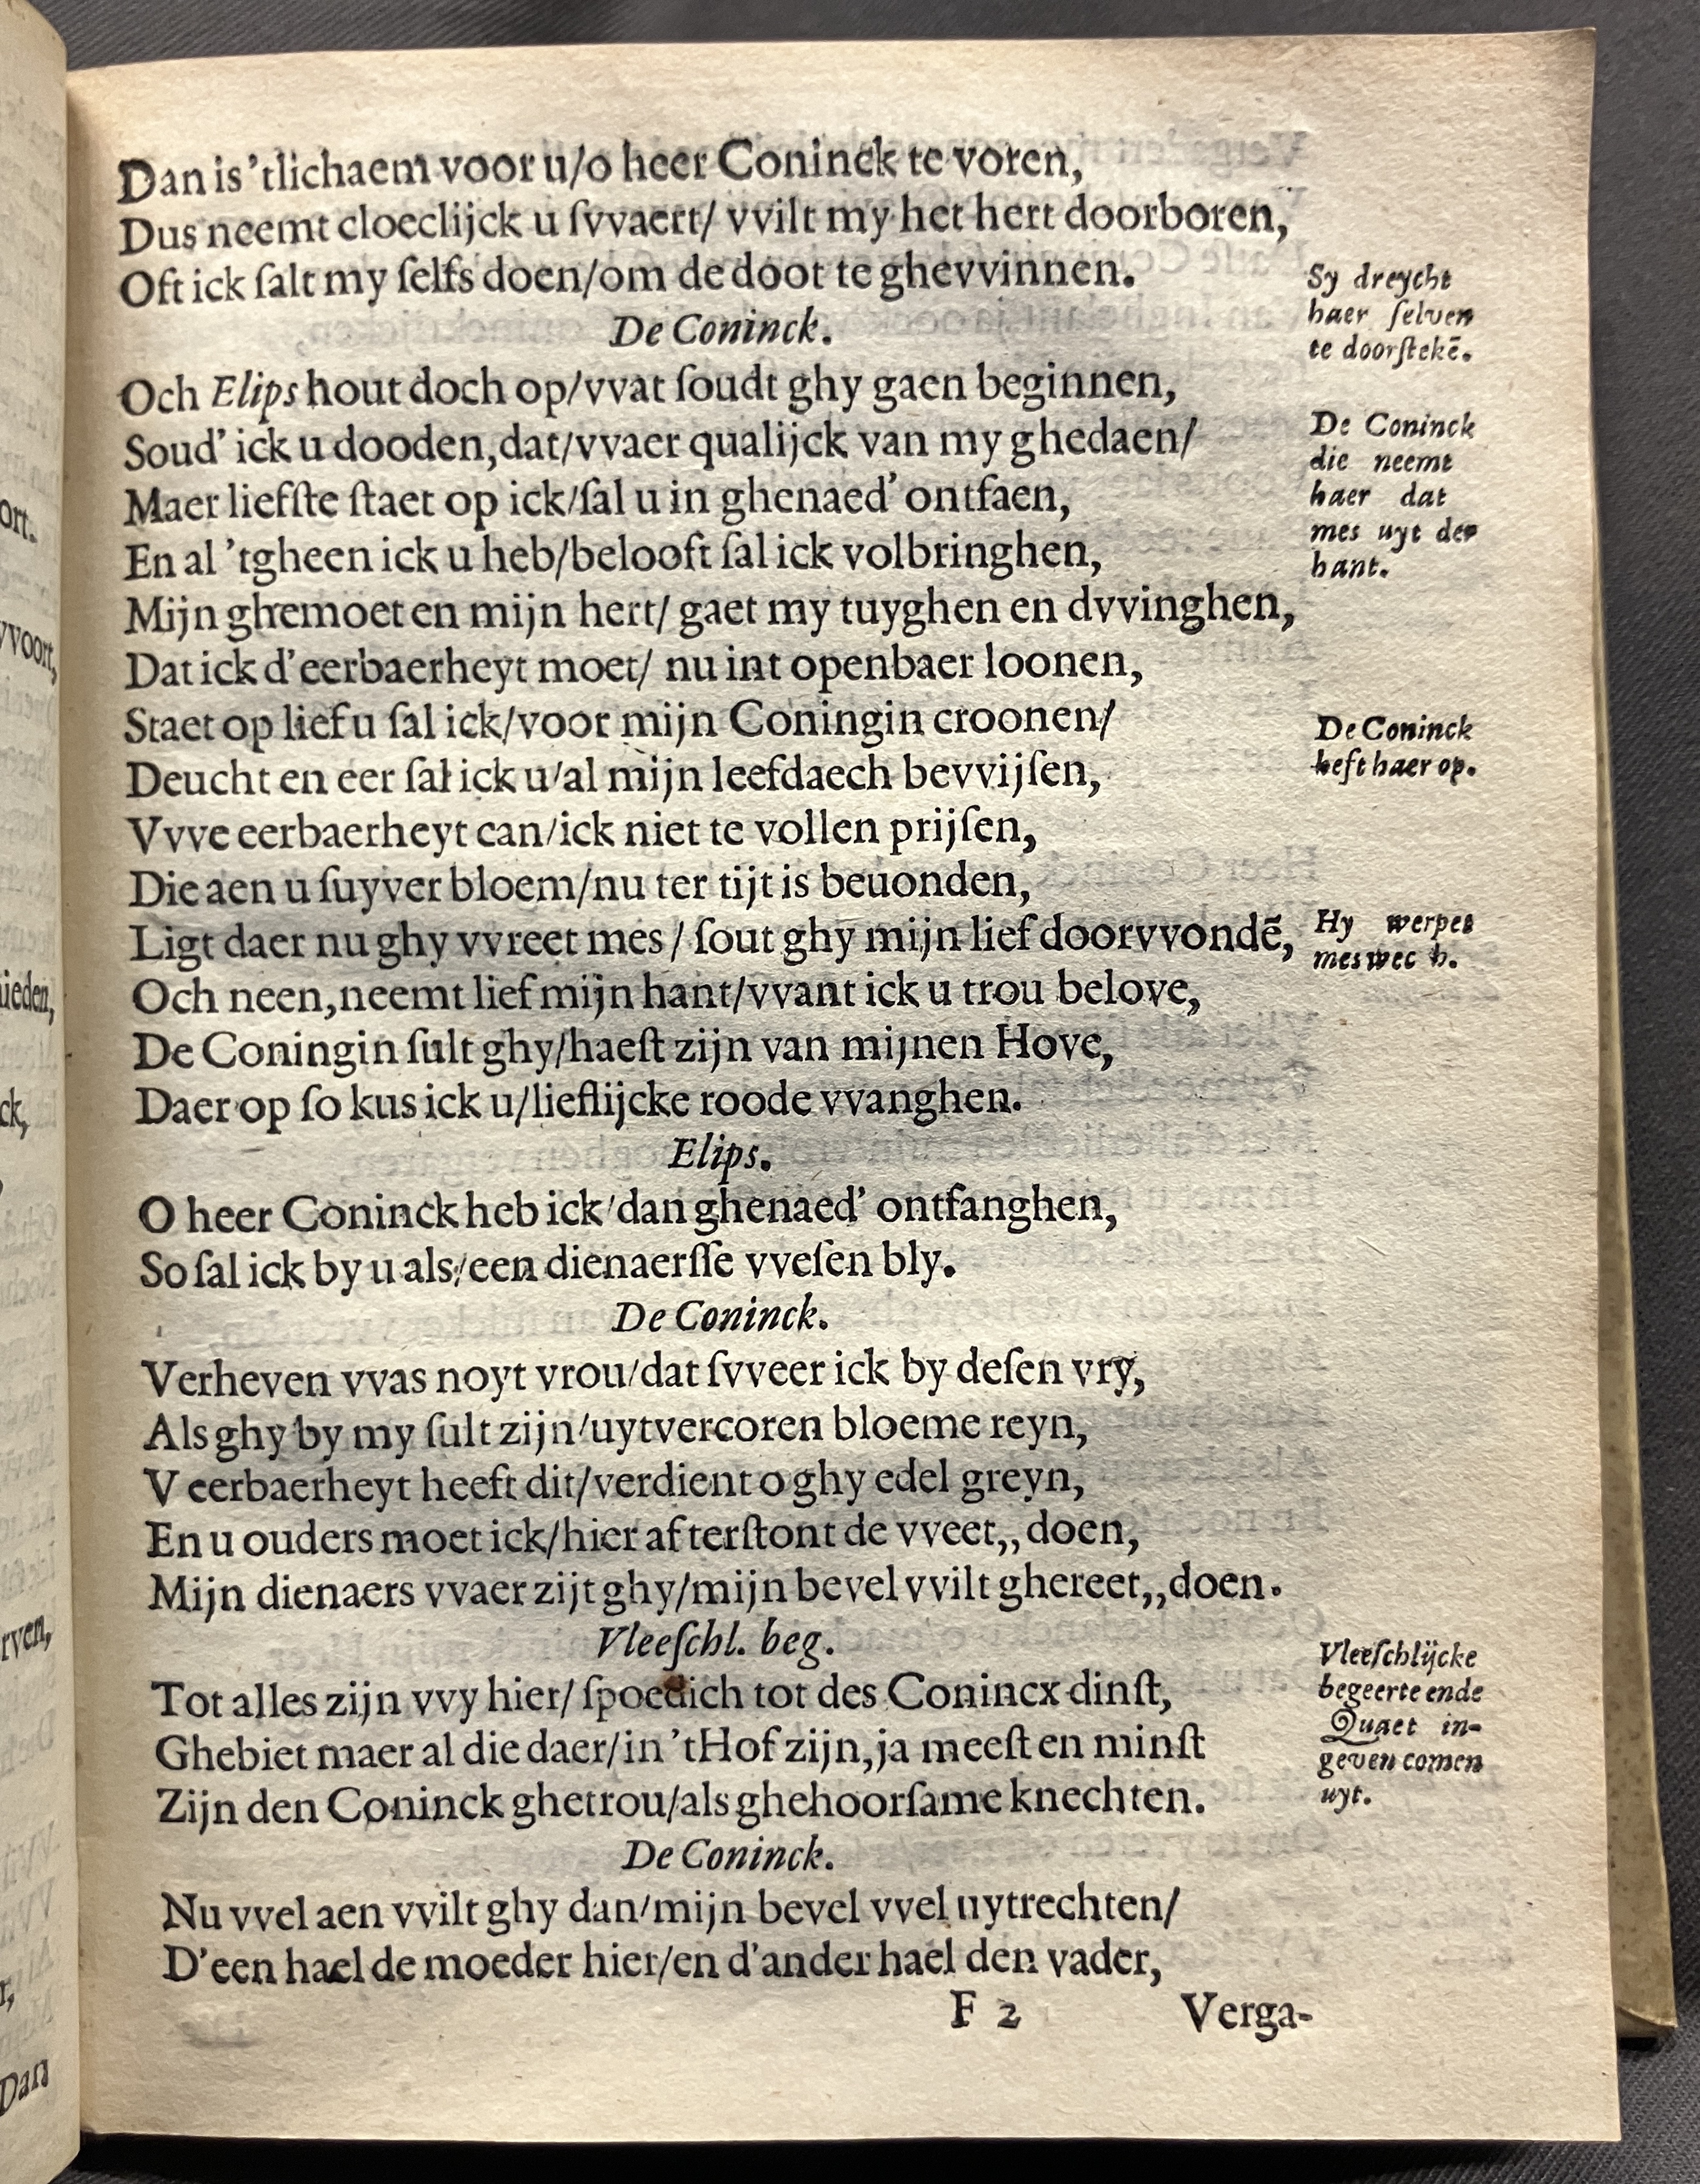 Dan is 'tlichaem voor u/o heer Coninck te voren,
Dus neemt cloeclijck u ſvvaert/ vvilt my het hert doorboren,
Oft ick ſalt my ſelfs doen/om de doot te ghevvinnen.
Sy dreycht
haer ſelven
te doorſtekē.
De Coninck.
Och Elips hout doch op/vvat ſoudt ghy gaen beginnen,
Soud' ick u dooden,dat/vvaer qualijck van my ghedaen/
Maer liefſte ſtaet op ick/ſal u in ghenaed' ontfaen,
En al 'tgheen ick u heb/belooft ſal ick volbringhen,
De Coninck
die neemt
haer dat
mes uyt der
hant.
Mijn ghemoet en mijn hert/ gaet my tuyghen en dvvinghen,
Dat ick d'eerbaerheyt moet/ nu int openbaer loonen,
Staet op lief u ſal ick/voor mijn Coningin croonen/
Deucht en eer ſal ick u/al mijn leefdaech bevvijſen,
De Coninck
heft haer op.
Vvve eerbaerheyt can/ick niet te vollen prijſen,
Die aen u ſuyver bloem/nu ter tijt is beuonden,
Ligt daer nu ghy vvreet mes / ſout ghy mijn lief doorvvondē,
Hy werpet
mes wec h.
Och neen,neemt lief mijn hant/vvant ick u trou belove,
De Coningin ſult ghy/haeſt zijn van mijnen Hove,
Daer op ſo kus ick u/lieflijcke roode vvanghen.
Elips.
O heer Coninck heb ick/dan ghenaed' ontfanghen,
So ſal ick by u als/een dienaerſſe vveſen bly.
De Coninck.
Verheven vvas noyt vrou/dat ſvveer ick by deſen vry,
Als ghy by my ſult zijn/uytvercoren bloeme reyn,
V eerbaerheyt heeft dit/verdient o ghy edel greyn,
En u ouders moet ick/hier af terſtont de vveet,, doen,
Mijn dienaers vvaer zijt ghy/mijn bevel vvilt ghereet,,doen.
Vleeſchl. beg.
Tot alles zijn vvy hier/ ſpoedich tot des Conincx dinſt,
Ghebiet maer al die daer/in 'tHof zijn,ja meeſt en minſt
Zijn den Coninck ghetrou/als ghehoorſame knechten.
Vleeſchlijcke
begeerte ende
Quaet in-
geven comen
uyt.
De Coninck.
Nu vvel aen vvilt ghy dan/mijn bevel vvel uytrechten/
D'een hael de moeder hier/en d'ander hael den vader,
F 2 Verga-